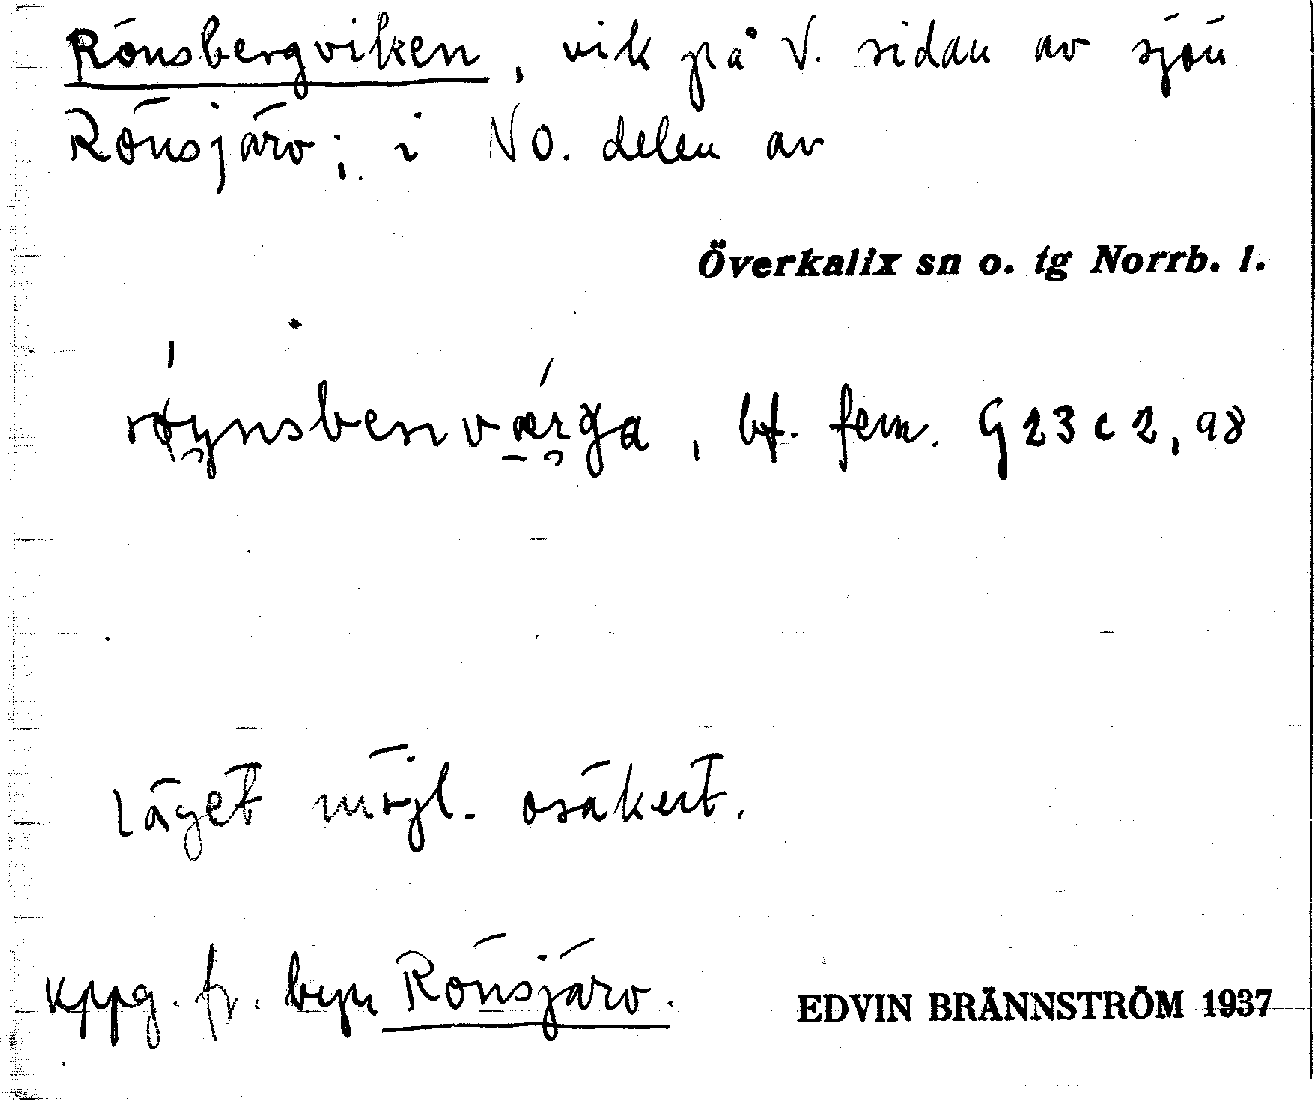 Rönsbergviken, vik på V. sidan av sjön
Rönsjärv; i NO. delen av
Överkalix sn o. tg Norrb. l.
røynsbenværga, bf. fem. G 23 c 2, 98
Läget möjl. osäkert.
Kppg. fr. byn Rönsjärv.
EDVIN BRÄNNSTRÖM 1937